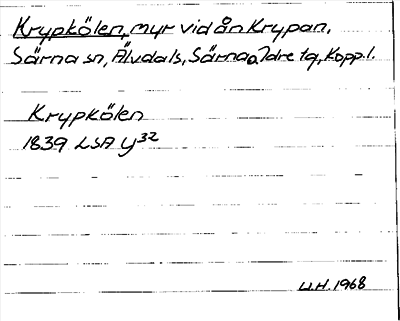 Krypkölen, myr vid ån Krypan,
Särna sn, Älvdals, Särna o. Idre tg, Kopp.l.
Krypkölen
1839 LSA Y32
U.H. 1968